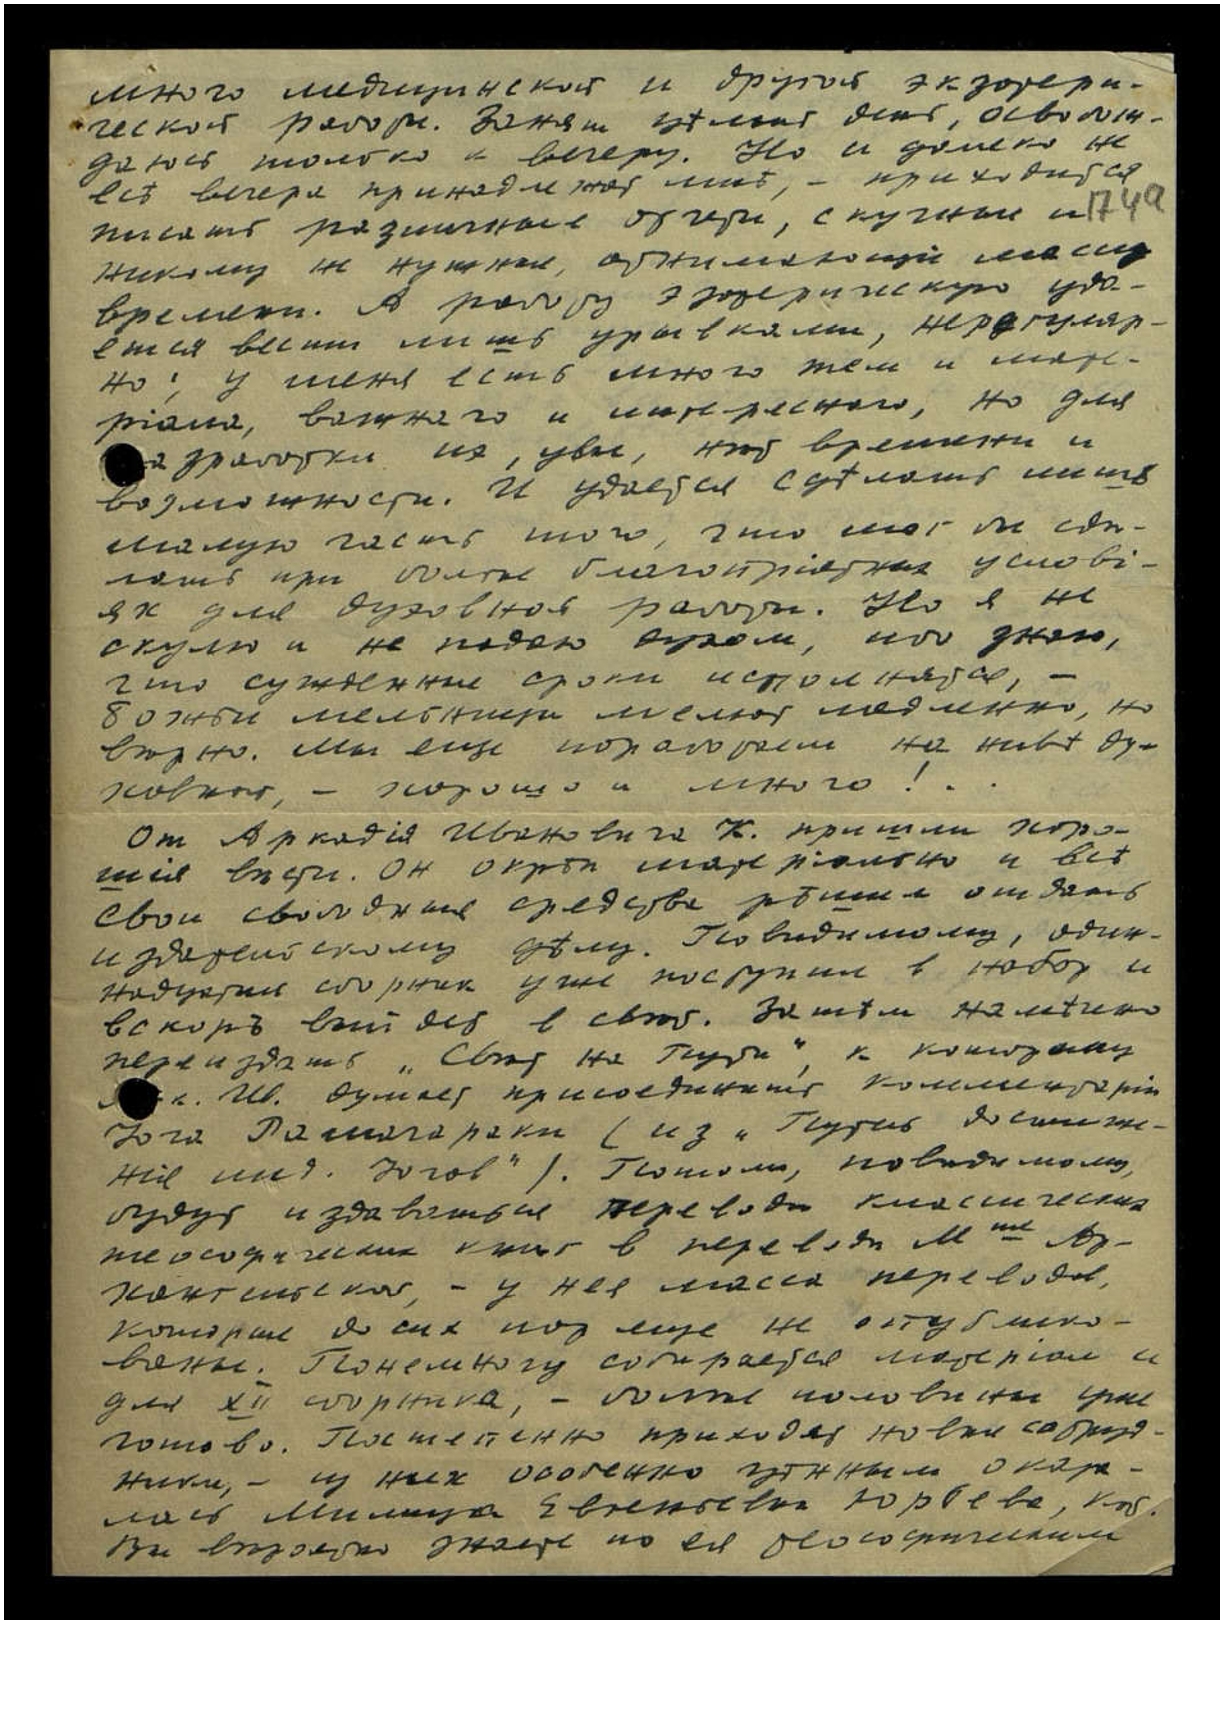 много медицинской и другой экзотери-
ческой работы. Занят цѣлый день, освобож-
даюсь только к вечеру. Но и далеко не
всѣ вечера принадлежат мнѣ, – приходится
писать различные отчеты, скучные и 174а
никому не нужные, отнимающіе массу
времени. А работу эзотерическую уда-
ется вести лишь урывками, нерегуляр-
но; у меня есть много тем и мате-
ріала, важнаго и интереснаго, но для
разработки их, увы, нѣт времени и
возможности. И удается сдѣлать лишь
малую часть того, что мог бы сдѣ-
лать при болѣе благопріятных услові-
ях для духовной работы. Но я не
скулю и не падаю духом, ибо знаю,
что сужденные сроки исполнятся, –
Божьи мельницы мелют медленно, но
вѣрно. Мы еще поработаем на нивѣ ду-
ховной, – хорошо и много!..
От Аркадія Ивановича К. пришли хоро-
шія вѣсти. Он окрѣп матеріально и всѣ
свои свободныя средства рѣшил отдать
издательскому дѣлу. Повидимому, один-
надцатый сборник уже поступил в набор и
вскорѣ выйдет в свѣт. Затѣм намѣчено
переиздать „Свѣт на Пути“, к которому
Арк. Ив. думает присоединить комментаріи
Іога Рамачараки (из „Путь достиже-
нія инд. Іогов“). Потом, повидимому,
будут издаваться переводы классических
теософических книг в переводѣ Мmе Ар-
хангельской, – у нея масса переводов,
которые до сих пор еще не опублико-
ваны. Понемногу собирается матеріал и
для XII сборника, – болѣе половины уже
готово. Постепенно приходят новые сотруд-
ники, – из них особенно цѣнным оказа-
лась Милица Евгеньевна Юрьева, кот.
Вы вѣроятно знаете по ея теософическим